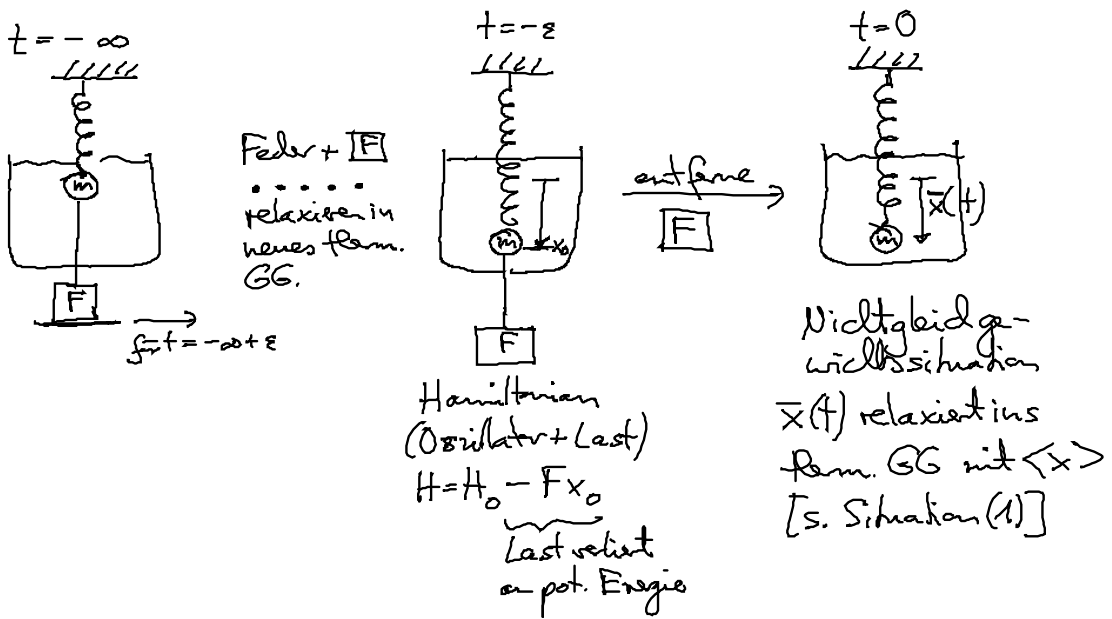 t = - ∞
m
F
für t = -∞+ε
Feder + F
relaxieren in
neues therm.
GG.
t = -ε
m
x₀
F
Hamiltonian
(Oszillator + Last)
H = H₀ - Fx₀
Last verliert
an pot. Energie
entferne
F
t = 0
x̄(t)
m
Nichtgleichge-
wichtssituation
x̄(t) relaxiert ins
therm. GG mit <x>
[s. Situation (1)]